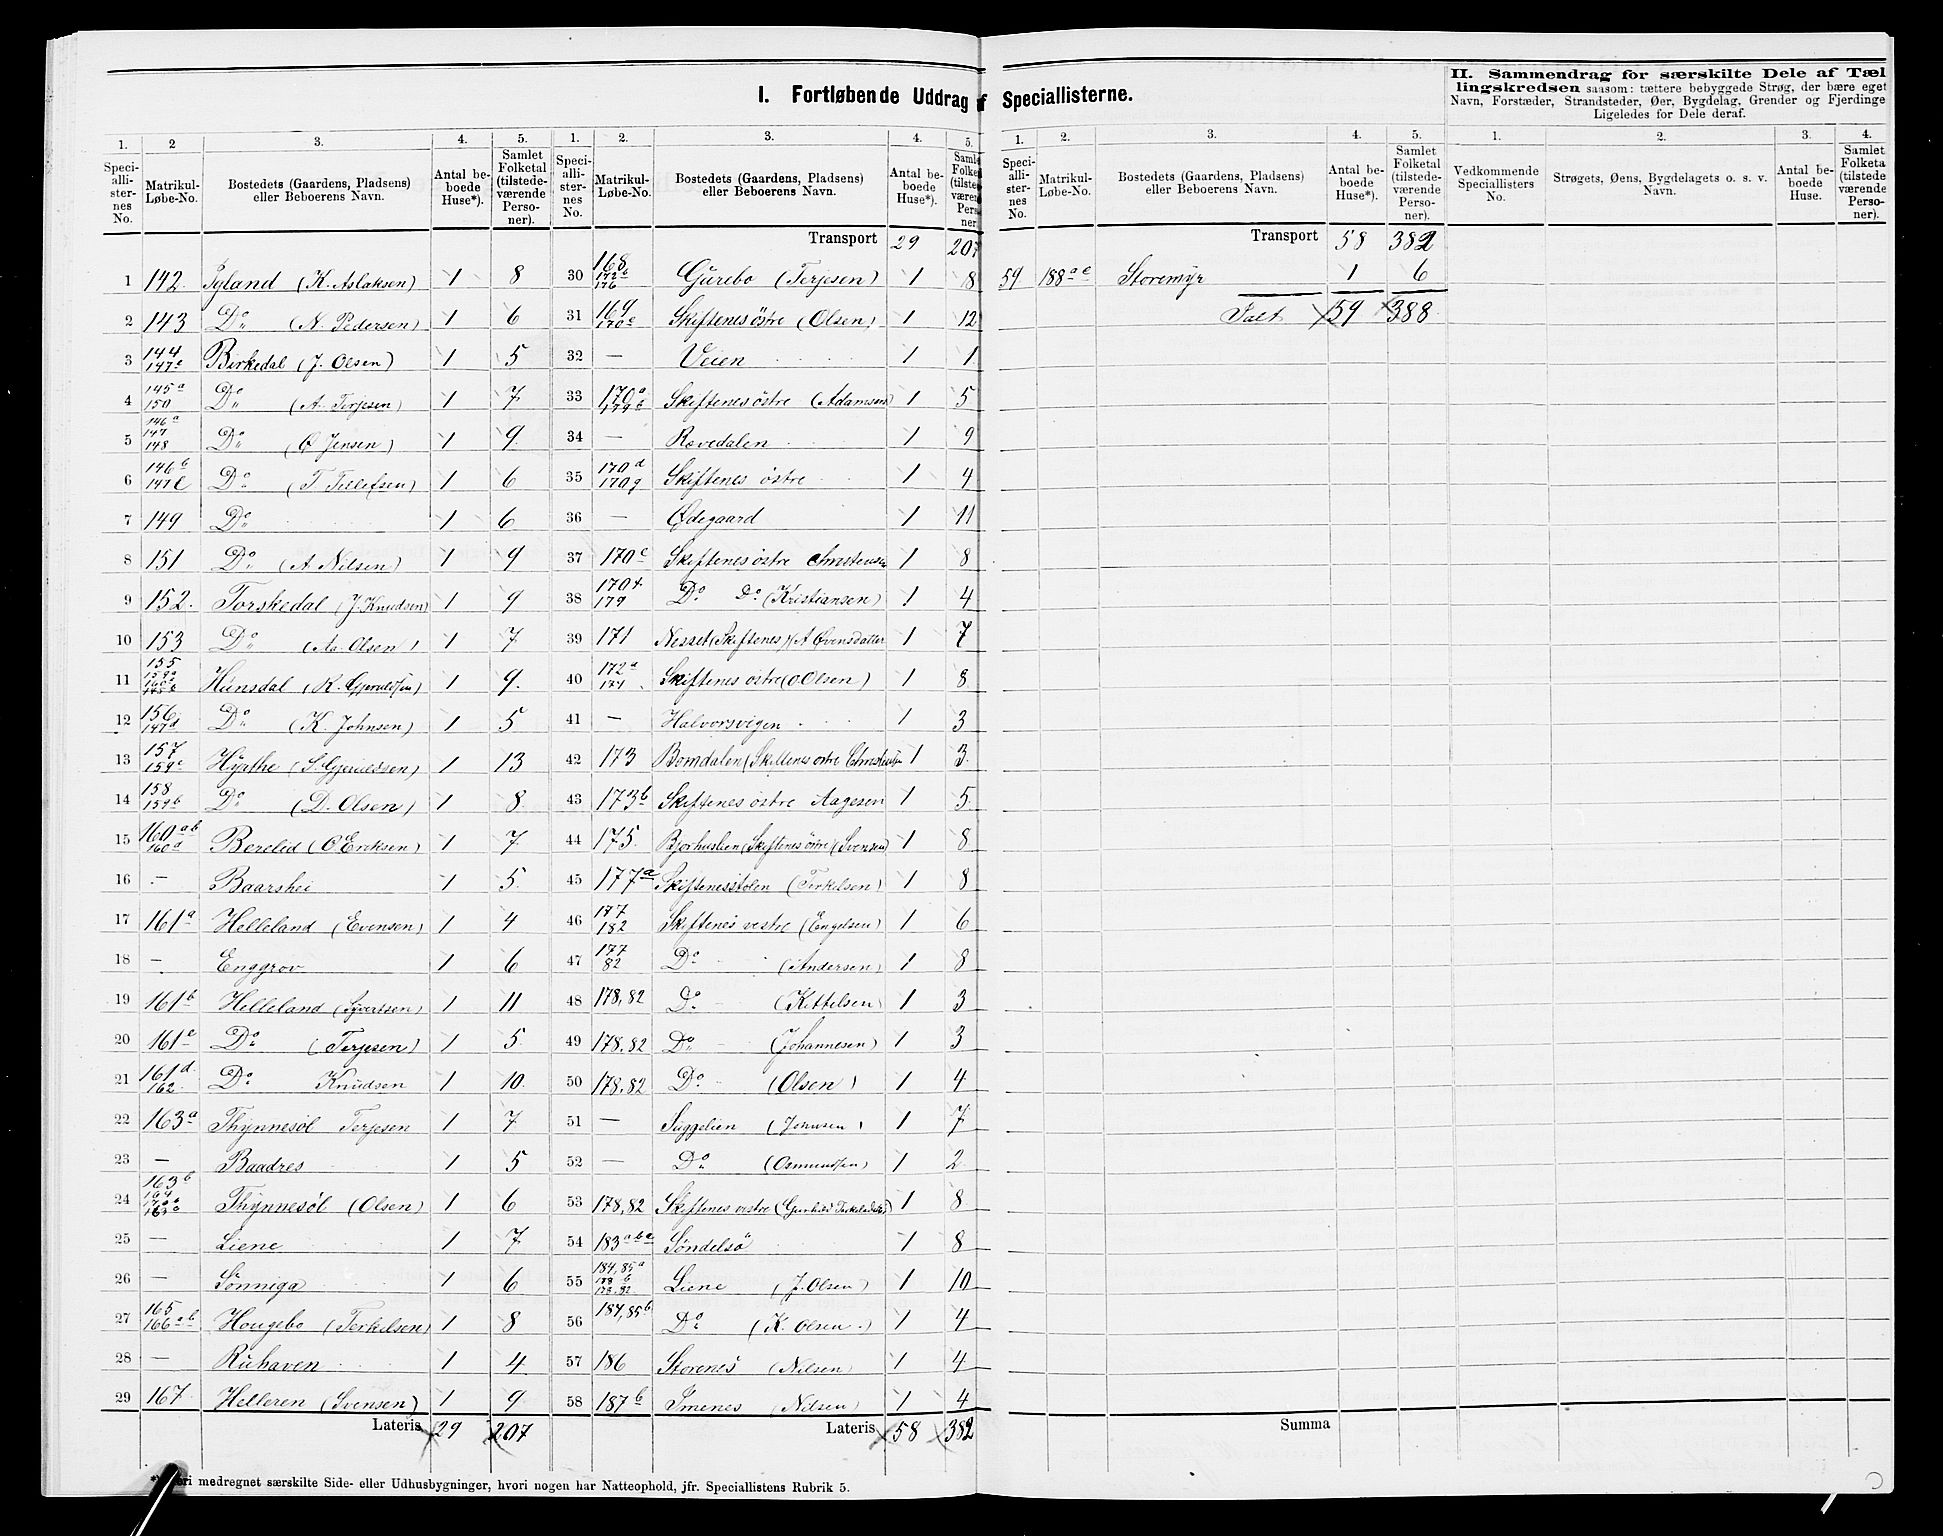 I. Fortløbende Uddrag af Speciallisterne.
II. Sammendrag for særskilte Dele af Tællingskredsen saasom: tættere bebyggede Strøg, der bære eget
Navn, Forstæder, Strandsteder, Øer, Bygdelag, Grender og Fjerdinge
Ligeledes for Dele deraf.
1. 2 3. 4. 5. 1. 2. 3. 4. 5. 1. 2. 3. 4. 5. 1. 2. 3. 4.
Speciallisternes No. Matrikul-Løbe-No. Bostedets (Gaardens, Pladsens) eller Beboerens Navn. Antal beboede Huse*). Samlet Folketal (tilstedeværende Personer).
Speciallisternes No. Matrikul-Løbe-No. Bostedets (Gaardens, Pladsens) eller Beboerens Navn. Antal beboede Huse*).
Speciallisternes No. Matrikul-Løbe-No. Bostedets (Gaardens, Pladsens) eller Beboerens Navn. Antal beboede Huse*). Samlet Folketal (tilstedeværende Personer).
Vedkommende Speciallisters No. Strøgets, Øens, Bygdelagets o. s. v. Navn. Antal beboede Huse. Samlet Folketa (tilstede værende Personer).
1 142. Tyland (K. Aslaksen) 1 8
2 143 Do (N. Pedersen) 1 6
3 144 147c Birkedal (J. Olsen) 1 5
4 145a 150 Do (A. Terjesen) 1 7
5 146a 147 148 Do (O Jensen) 1 9
6 146b 147 Do (T Tellefsen) 1 6
7 149 Do 1 6
8 151 Do (A Nilsen) 1 9
9 152. Torskedal (J. Knudsen) 1 9
10 153 Do (Aa. Olsen) 1 7
11 155 Hunsdal (K. Gjeruldsen) 1 9.
12 156 147d Do (K. Johnsen) 1 5
13 157 159c Hynthe (S. Gjeruldsen) 1 13
14 158 159b Do (D. Olsen) 1 8
15 160ab 160d Berelid (O Eriksen) 1 7
16 - Baarshei 1 5
17 161a Helleland (Evensen) 1 4
18 - Enggrov 1 6
19 161b Helleland (Syvertsen) 1 11
20 161c Do (Terjesen) 1 5
21 161d 162 Do Knudsen 1 10
22 163a Thynnesøl Terjesen 1 7
23 - Baadres 1 5
24 163b 164 Thynnesøl (Olsen) 1 6
25 - Liene 1 7
26 - Sønniga 1 6
27 165 166ab Hougebo (Terkelsen) 1 8
28 - Ruhaven 1 4
29 167 Helleren (Svensen) 1 9
Lateris 29 207
Transport 29 207
30 168 172b 176 Gurebo (Terjesen) 1 8
31 169 170c Skiftenes östre (Olsen) 1 12
32 - Veien 1 1
33 170a 179b Skiftenes östre (Adamsen) 1 5
34 - Rævedalen 1 9
35 170d 170g Skiftenes östre 1 4
36 - Ødegaard 1 11
37 170e Skiftenes östre Christensen 1 8
38 170f. 179 Do Do (Kristiansen) 1 4
39 171 Nesset (Skiftenes) (A Evensdatter 1 7
40 172a 174 Skiftenes ostre (O. Olsen) 1 8
41 - Halvorsvigen 1 3
42 173 Bomdalen (Skiftenes ostre Christensen 1 3.
43 173b Skiftenes ostre Aagesen 1 5
44 175. Bjorhuslien (Skiftenes östre) (Svensen) 1 8
45 177a Skiftenesstolen (Terkelsen) 1 8
46 177 182 Skiftenes vestre (Engelsen) 1 6
47 177 82 Do (Andersen) 1 8
48 178,82 Do (Kittelsen) 1 3
49 178,82 Do (Johannesen) 1 3
50 178,82 Do (Olsen) 1 4
51 - Suggelien (Johnsen) 1 7
52 - Do (Osmundsen) 1 2
53 178,82 Skiftenes vestre (Gunhild Terkelsdatter) 1 8
54 183abc Söndelsö 1 8
55 184,85a 178 b 178,82 Liene (J. Olsen) 1 10
56 184,85b Do (K. Olsen.) 1 4
57 186 Storenes (Nilsen) 1 4
58 187b Imenes (Nilsen) 1 4
Lateris 58 382
Transport 58 382
59 188ac Storemyr 1 6
Ialt 59 388
Summa
medregnet særskilte Side- eller Udhusbygninger, hvori nogen har Natteophold, jfr. Speciallistens Rubrik 5.